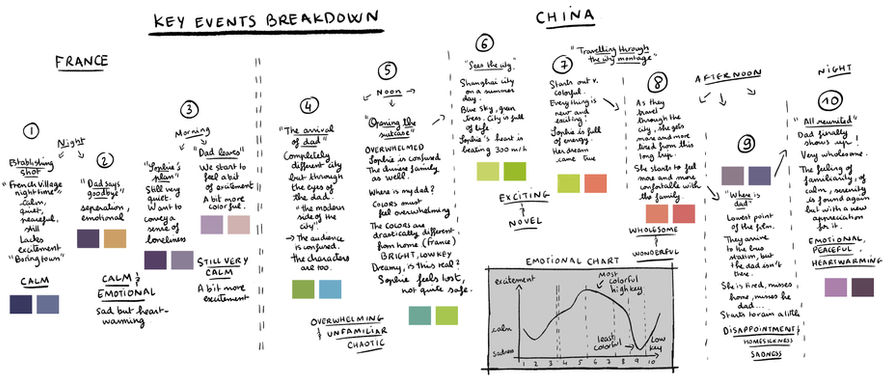 KEY EVENTS BREAKDOWN
CHINA
FRANCE
1
Night
Establishing
shot
"French village
night time"
calm,
quiet,
peaceful,
still
Lacks
excitement
"Boring town"
CALM
2
"Dad says
goodbye"
separation,
emotional
CALM &
EMOTIONAL
Sad but heart-
warming
3
Morning
"Sophie's
plan"
Still very
quiet.
Want to
convey a
sense of
loneliness
"Dad leaves"
We start to
feel a bit
of excitement
A bit more
colorful.
STILL VERY
CALM
A bit more
excitement
4
"The arrival
of dad"
Completely
different city
but through
the eyes of
the dad.
"the modern
side of the
city".
→ The audience
is confused.
the characters
are too.
5
Noon
"Opening the
suitcase"
OVERWHELMED
Sophie is confused
The chinese family
as well.
Where is my dad?
Colors must
feel overwhelming
The colors are
drastically different
from home (France)
BRIGHT, LOW KEY
Dreamy, is this real?
Sophie feels lost,
not quite safe.
OVERWHELMING
& UNFAMILIAR
CHAOTIC
6
"Sees the city"
Shanghai city
on a summer
day.
Blue sky, green
trees. City is full
of life
Sophie's heart is
beating 300 m/h
EXCITING
&
NOVEL
"Travelling through
the city montage"
7
Starts out v.
colorful.
Everything is
new and
exciting!
Sophie is full
of energy.
Her dream
came true
8
As they
travel
through the
city, she gets
more and more
tired from this
long trip.
She starts to feel
more and more
comfortable with
the family.
WHOLESOME
&
WONDERFUL
AFTERNOON
9
"Where is
dad"
Lowest point
of the film.
They arrive
to the bus
station, but the
dad isn't there.
She is tired, misses
home, misses her
dad...
Starts to rain a little
DISAPPOINTMENT &
HOMESICKNESS
SADNESS
NIGHT
10
"All reunited"
Dad finally
shows up!
Very wholesome.
The feeling of
familiarity, of
calm, serenity
is found again
but with a new
appreciation
for it.
EMOTIONAL,
PEACEFUL,
HEARTWARMING
EMOTIONAL CHART
excitement
calm
sadness
Most
colorful
high key
least
colorful
Low
key
1 2 3 4 5 6 7 8 9 10